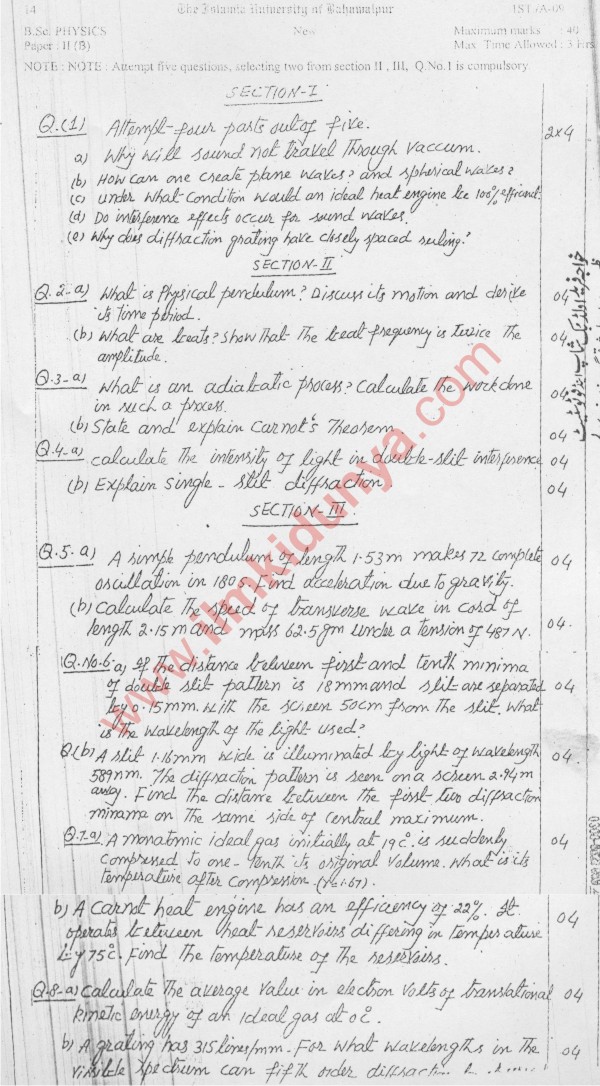 14 The Islamia University of Bahawalpur 1ST/A-09
B.Sc. PHYSICS New Maximum marks : 40
Paper : II (B) Max. Time Allowed : 3 Hrs
NOTE : NOTE : Attempt five questions, selecting two from section II , III, Q.No.1 is compulsory
SECTION-I
Q.(1) Attempt four parts out of five. 2x4
a) Why will sound not travel through vaccum.
(b) How can one create plane waves? and spherical waves?
(c) under what condition would an ideal heat engine be 100% efficient.
(d) Do interference effects occur for sound waves.
(e) Why does diffraction grating have closely spaced ruling?
SECTION-II
Q.2-a) What is Physical pendulum? Discuss its motion and derive 04
its time period.
(b) What are beats? Show that the beat frequency is twice the 04
amplitude.
Q.3-a) What is an adiabatic process? Calculate the work done 04
in such a process.
(b) State and explain Carnot's Theorem 04
Q.4-a) calculate the intensity of light in double-slit interference 04
(b) Explain Single-slit diffraction 04
SECTION-III
Q.5.a) A simple pendulum of length 1.53m makes 72 complete 04
oscillation in 180s. Find acceleration due to gravity.
(b) Calculate the speed of transverse wave in cord of
length 2.15m and mass 62.5gm under a tension of 487N. 04.
Q.No.6 a) If the distance between first and tenth minima
of double slit pattern is 18mm and slit are separated 04
by 0.15mm. with the screen 50cm from the slit. What
is the wavelength of the light used?
Q.(b) A slit 1.16mm wide is illuminated by light of wavelength 04.
589nm. The diffraction pattern is seen on a screen 2.94m
away. Find the distance between the first two diffraction
minama on the same side of central maximum.
Q.7-a) A monatomic ideal gas initially at 19c° is suddenly 04
compressed to one-tenth its original volume. What is its
temperature after compression. (γ=1.67).
b) A Carnot heat engine has an efficiency of 22%. It 04
operates between heat reservoirs differing in temperature
by 75c°. Find the temperature of the reservoirs.
Q.8-a) Calculate the average value in electron volts of translational 04
kinetic energy of an ideal gas at 0c°.
b) A grating has 315 lines/mm. For what wavelengths in the 04
visible spectrum can fifth order diffraction
www.ilmkidunya.com